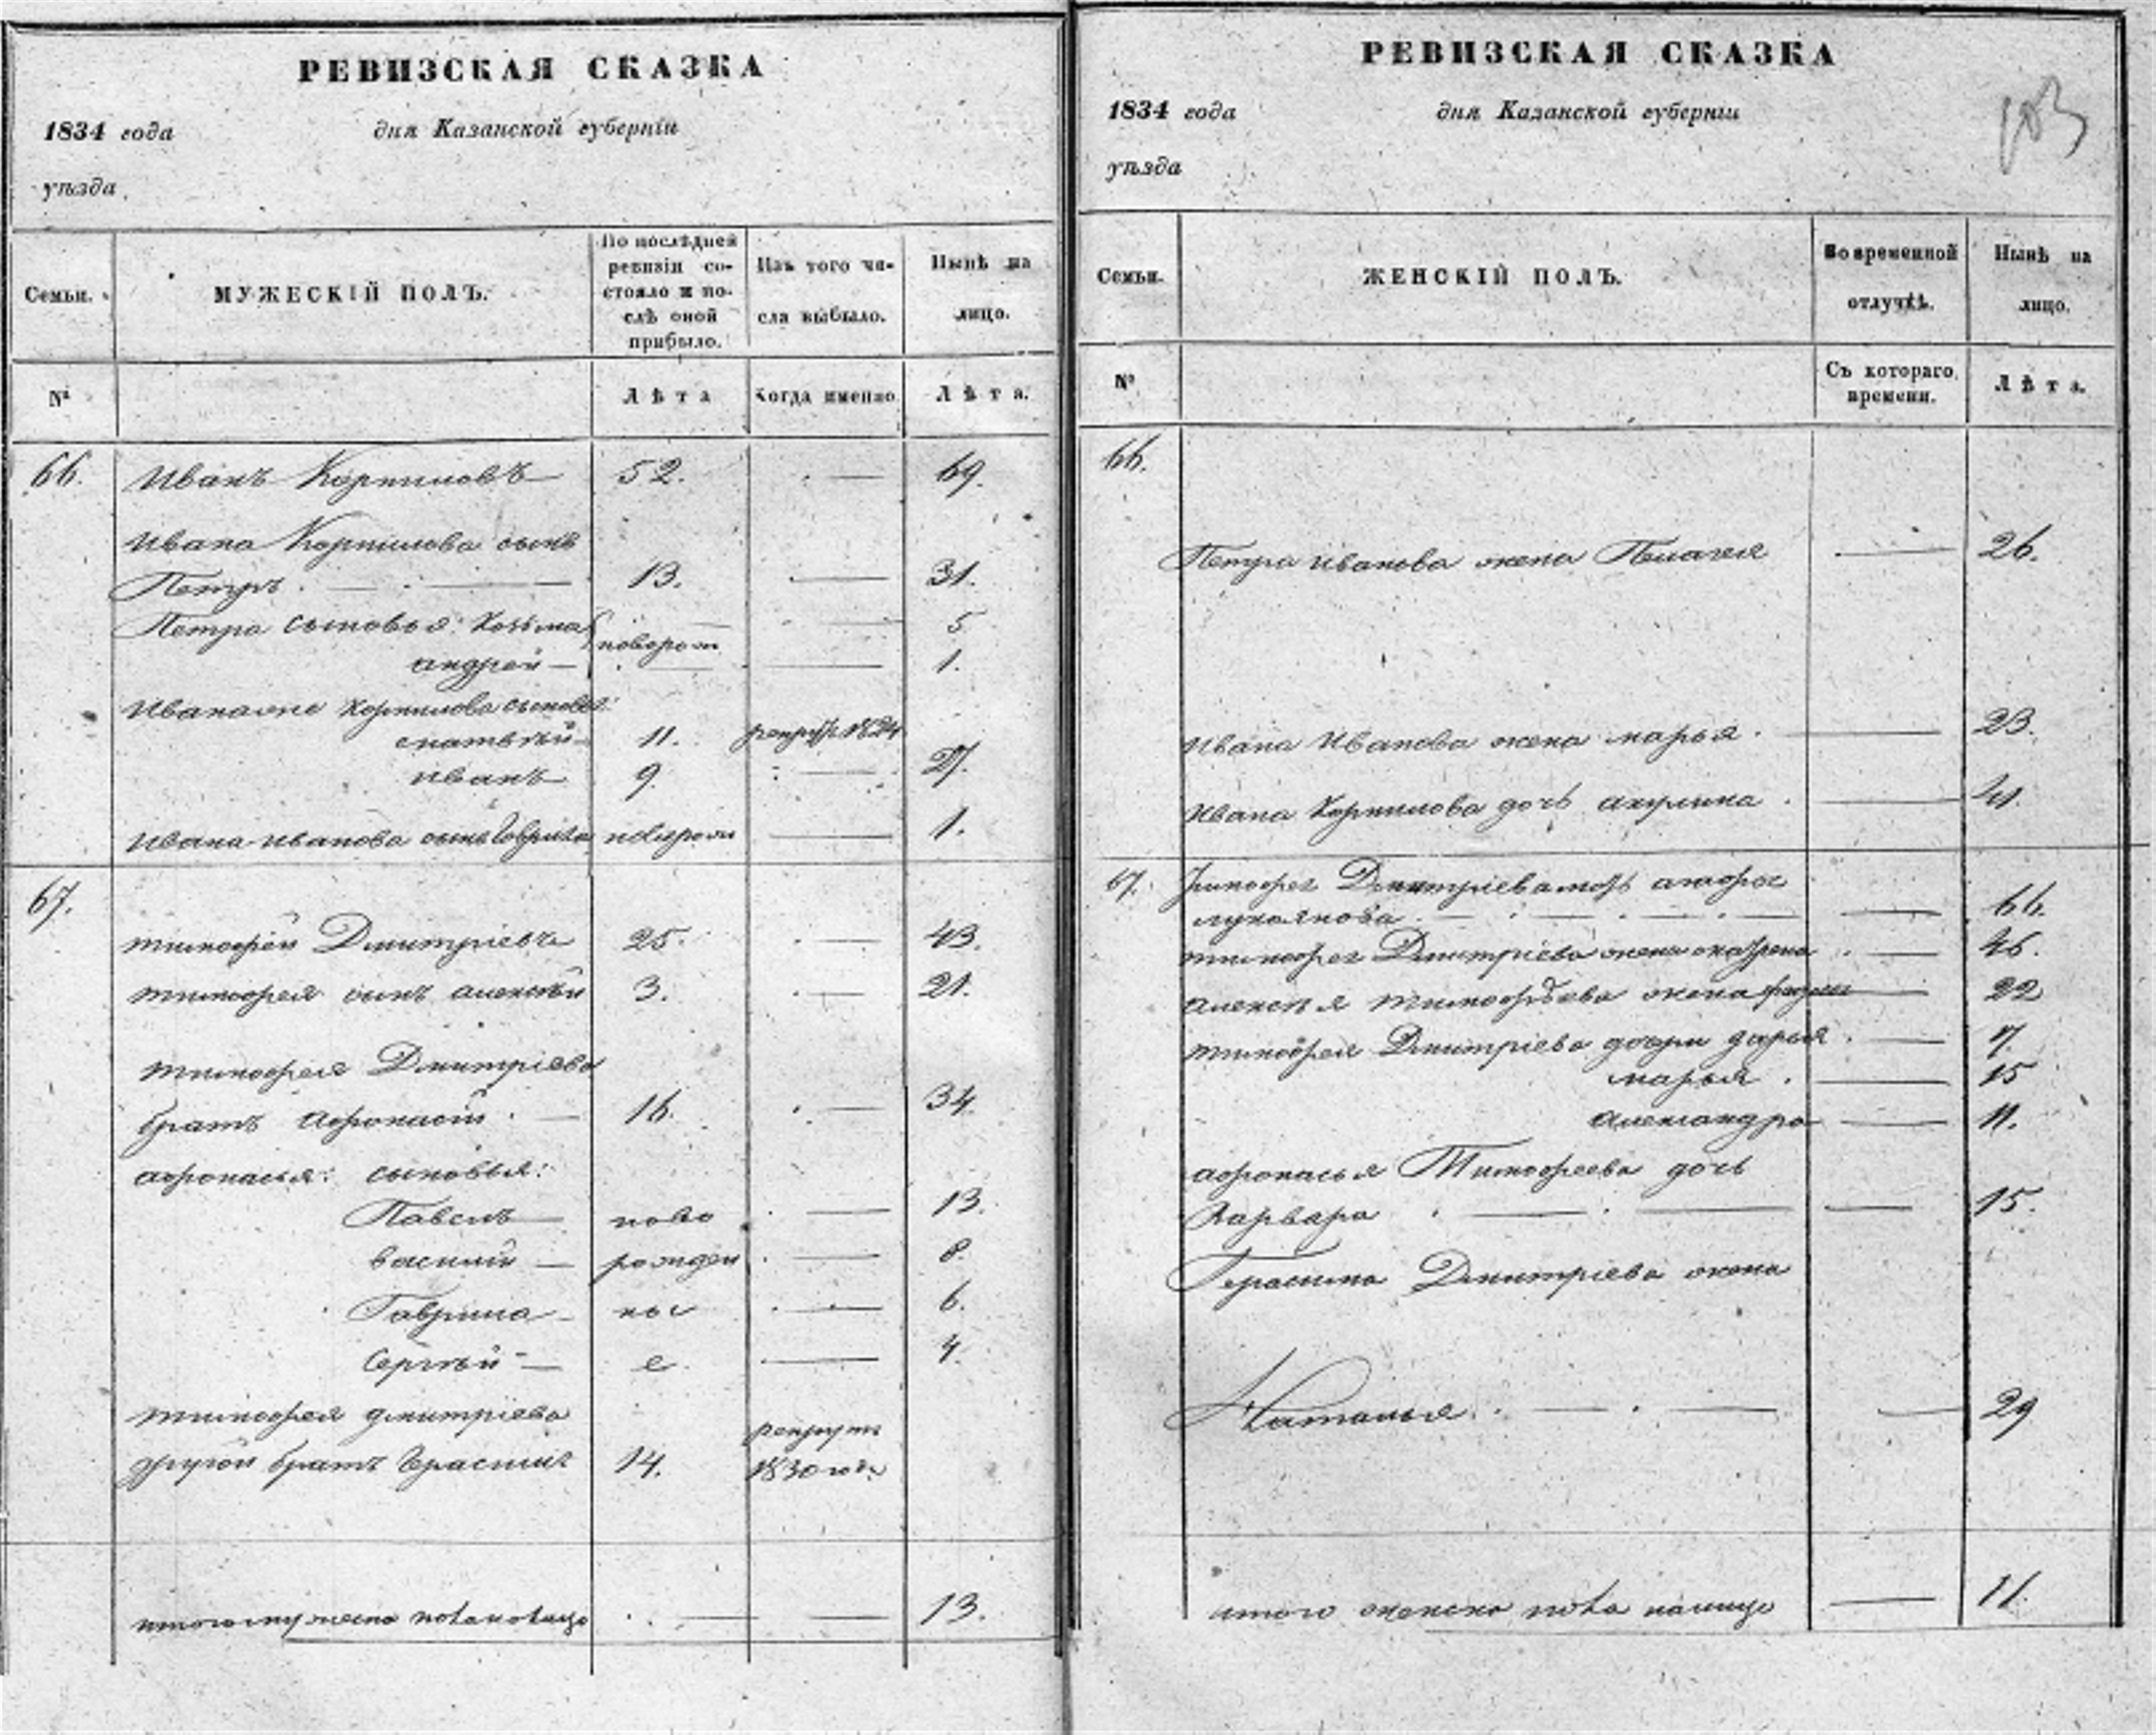 РЕВИЗСКАЯ СКАЗКА
1834 года дня Казанской губерніи
уѣзда
Семьи. МУЖЕСКІЙ ПОЛЪ. По послѣдней ревизіи состояло и послѣ оной прибыло. Изъ того числа выбыло. Нынѣ на лицо.
№ Лѣта Когда именно Лѣта.
66. Иванъ Корниловъ 52. — 69.
Ивана Корнилова сынъ
Петръ. 13. — 31.
Петра сыновья: Козьма 5
новорож
андрей — — 1.
Ивана же Корнилова сыновья:
матвѣй 11. рекрут 1824
иванъ 9. — 27.
Ивана Иванова сынъ Гаврила новорож — 1.
67.
тимофей Дмитріевъ 25. — 43.
тимофея сынъ алексѣй 3. — 21.
тимофея Дмитріева
братъ афонасій 16. — 34.
афонасья: сыновья:
Павелъ — ново — 13.
василий — рожден — 8.
Гаврила — ны — 6.
Сергѣй — е — 4.
тимофея дмитріева рекрутъ
другой братъ Герасимъ 14. 1830 года
итого мужеска пола налицо — — 13.
РЕВИЗСКАЯ СКАЗКА
1834 года дня Казанской губерніи
103
уѣзда
Семьи. ЖЕНСКІЙ ПОЛЪ. Во временной отлучкѣ. Нынѣ на лицо.
№ Съ котораго времени. Лѣта.
66.
Петра иванова жена Пелагея — 26.
Ивана Иванова жена марья. — 23.
Ивана Корнилова дочь акулина. — 41.
67. тимофея Дмитріева мать
лукьянова. — 66.
тимофея Дмитріева жена — 46.
алексѣя тимофѣева жена — 22
тимофея Дмитріева дочери дарья. — 7.
марья. — 15
александра — 11.
афонасья Тимофеева дочь
Варвара — 15.
Герасима Дмитріева жена
Наталья. — 29
итого женска пола налицо — 11.